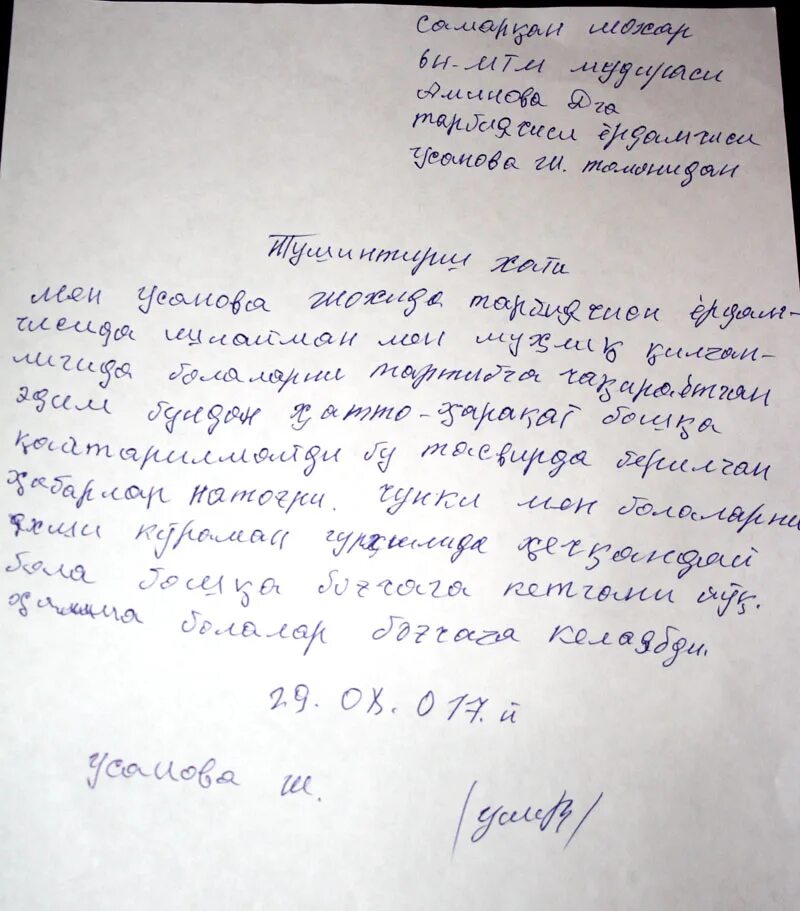 Самарқан шохар
6н-МТМ мудираси
Аминова Д га
тарбиячиси ёрдамчиси
Усанова Ш. томонидан
Тушинтириш хати
мен Усанова тарбиячиси ёрдам-
чисида ишлайман мен қилган-
лигида болаларни тартибга чақираётган
эдим бундан ҳатто-ҳаракат бошқа
қайтарилмайди бу тасвирда берилган
ҳабарлар натоғри. чунки мен болаларни
яхши кўраман ҳечқандай
бола бошқа боғчага кетгани йўқ.
ҳамма болалар боғчага келаябди.
29. 0X. 017. й
Усанова Ш.